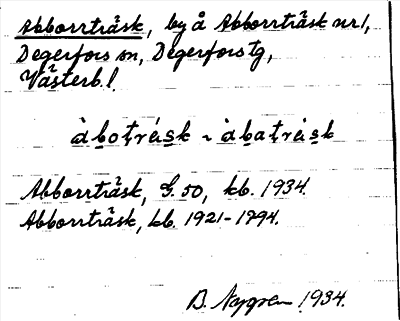 Abborrträsk, by å Abborrträsk nr 1,
Degerfors sn, Degerfors tg,
Västerb. l.
àbotrésk ~ àbatrésk
Abborrträsk, G. 50, kb. 1934.
Abborrträsk, kb. 1921-1894.
B. Nygren 1934.